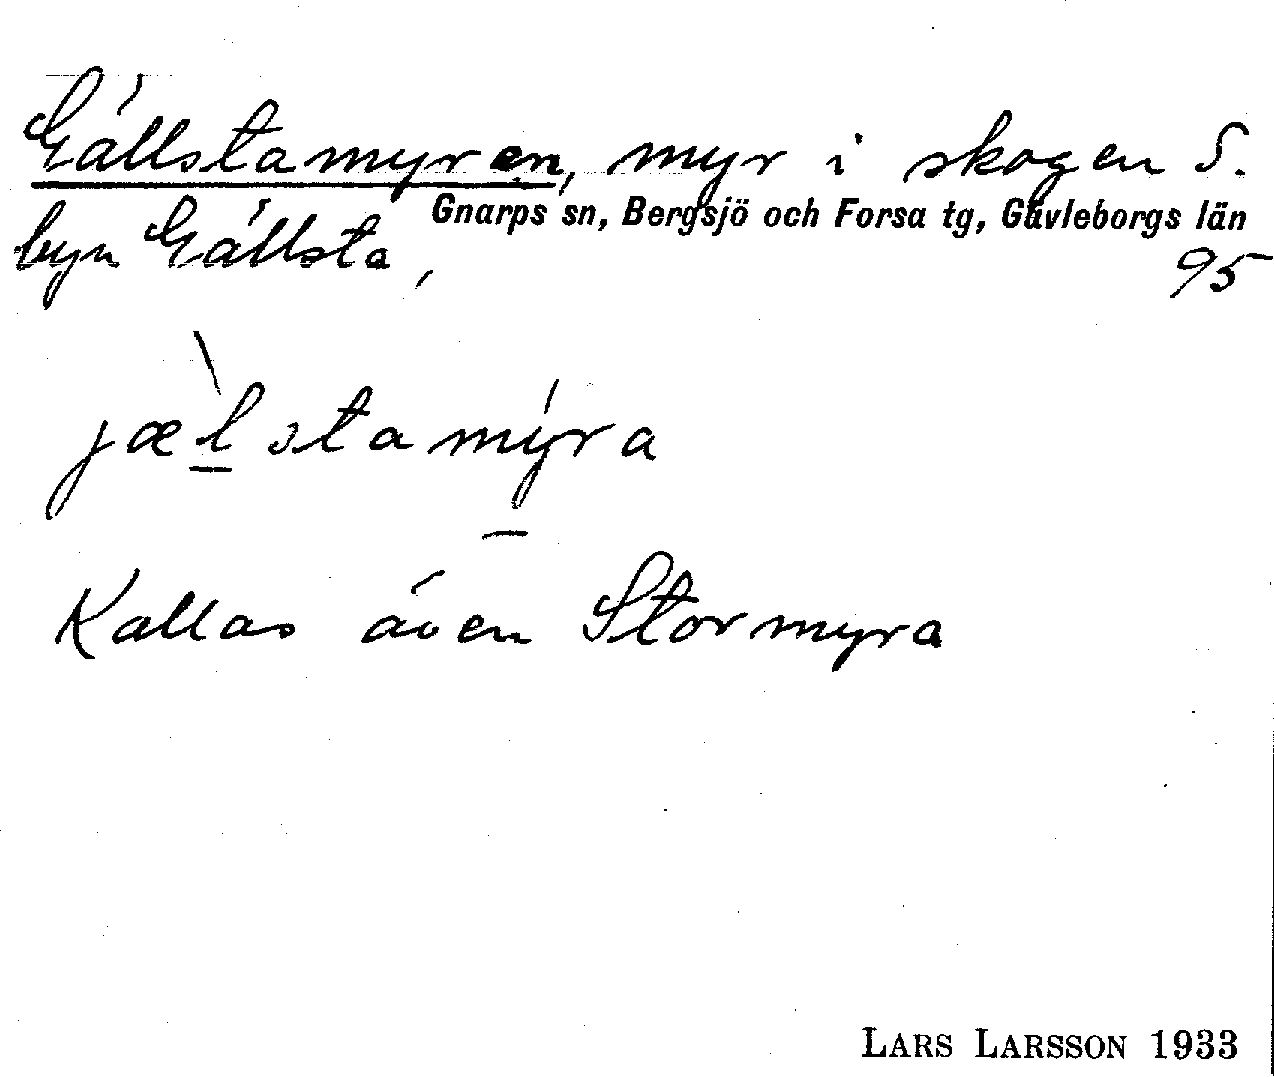 Gällstamyren, myr i skogen S.
Gnarps sn, Bergsjö och Forsa tg, Gävleborgs län
byn Gällsta,
95
jæl̠stamy̠ra
Kallas även Stormyra
LARS LARSSON 1933